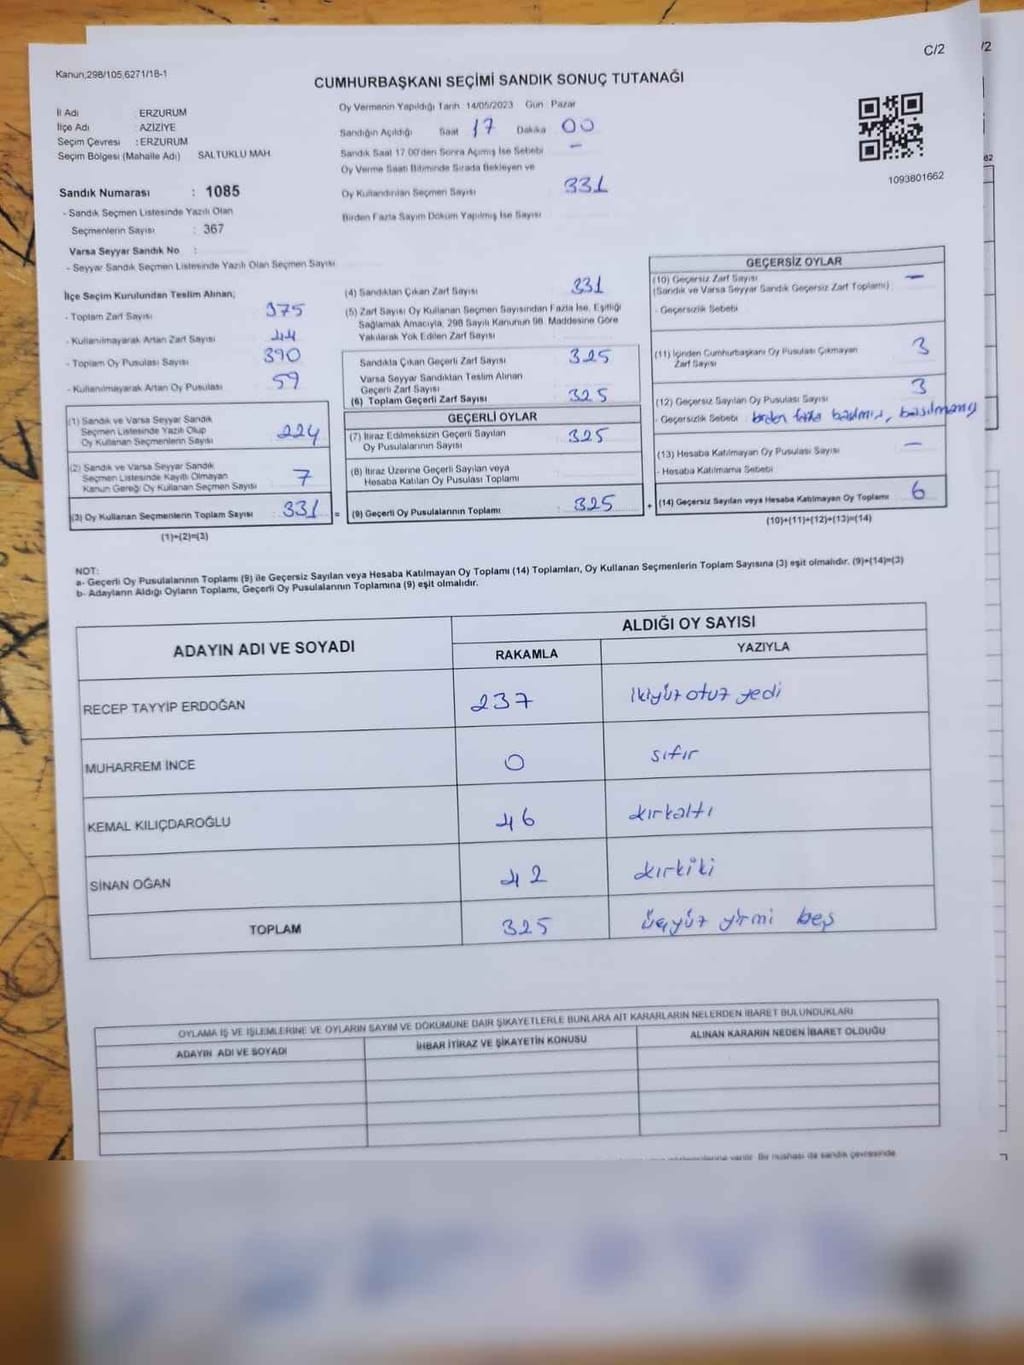 C/2
/2
Kanun,298/105,6271/18-1
CUMHURBAŞKANI SEÇİMİ SANDIK SONUÇ TUTANAĞI
İl Adı ERZURUM
İlçe Adı AZİZİYE
Seçim Çevresi : ERZURUM
Seçim Bölgesi (Mahalle Adı) SALTUKLU MAH
Sandık Numarası : 1085
- Sandık Seçmen Listesinde Yazılı Olan
Seçmenlerin Sayısı : 367
Varsa Seyyar Sandık No :
- Seyyar Sandık Seçmen Listesinde Yazılı Olan Seçmen Sayısı
Oy Vermenin Yapıldığı Tarih 14/05/2023 Gün Pazar
Sandığın Açıldığı Saat 17 Dakika 00
Sandık Saat 17.00'den Sonra Açılmış İse Sebebi -
Oy Verme Saati Bitiminde Sırada Bekleyen ve
Oy Kullandırılan Seçmen Sayısı 331
Birden Fazla Sayım Döküm Yapılmış İse Sayısı
1093801662
İlçe Seçim Kurulundan Teslim Alınan;
- Toplam Zarf Sayısı 375
- Kullanılmayarak Artan Zarf Sayısı 44
- Toplam Oy Pusulası Sayısı 390
- Kullanılmayarak Artan Oy Pusulası 59
(1) Sandık ve Varsa Seyyar Sandık
Seçmen Listesinde Yazılı Olup
Oy Kullanan Seçmenlerin Sayısı 224
(2) Sandık ve Varsa Seyyar Sandık
Seçmen Listesinde Kayıtlı Olmayan
Kanun Gereği Oy Kullanan Seçmen Sayısı 7
(3) Oy Kullanan Seçmenlerin Toplam Sayısı 331 =
(1)+(2)=(3)
(4) Sandıktan Çıkan Zarf Sayısı 331
(5) Zarf Sayısı Oy Kullanan Seçmen Sayısından Fazla İse, Eşitliği
Sağlamak Amacıyla, 298 Sayılı Kanunun 98. Maddesine Göre
Yakılarak Yok Edilen Zarf Sayısı
Sandıkta Çıkan Geçerli Zarf Sayısı 325
Varsa Seyyar Sandıktan Teslim Alınan
Geçerli Zarf Sayısı
(6) Toplam Geçerli Zarf Sayısı 325
GEÇERLİ OYLAR
(7) İtiraz Edilmeksizin Geçerli Sayılan
Oy Pusulalarının Sayısı 325
(8) İtiraz Üzerine Geçerli Sayılan veya
Hesaba Katılan Oy Pusulası Toplamı
(9) Geçerli Oy Pusulalarının Toplamı 325 +
GEÇERSİZ OYLAR
(10) Geçersiz Zarf Sayısı -
(Sandık ve Varsa Seyyar Sandık Geçersiz Zarf Toplamı)
- Geçersizlik Sebebi
(11) İçinden Cumhurbaşkanı Oy Pusulası Çıkmayan 3
Zarf Sayısı
(12) Geçersiz Sayılan Oy Pusulası Sayısı 3
- Geçersizlik Sebebi birden fazla basılmış, basılmamış
(13) Hesaba Katılmayan Oy Pusulası Sayısı -
- Hesaba Katılmama Sebebi
(14) Geçersiz Sayılan veya Hesaba Katılmayan Oy Toplamı 6
(10)+(11)+(12)+(13)=(14)
NOT:
a- Geçerli Oy Pusulalarının Toplamı (9) ile Geçersiz Sayılan veya Hesaba Katılmayan Oy Toplamı (14) Toplamları, Oy Kullanan Seçmenlerin Toplam Sayısına (3) eşit olmalıdır. (9)+(14)=(3)
b- Adayların Aldığı Oyların Toplamı, Geçerli Oy Pusulalarının Toplamına (9) eşit olmalıdır.
ADAYIN ADI VE SOYADI ALDIĞI OY SAYISI
RAKAMLA YAZIYLA
RECEP TAYYİP ERDOĞAN 237 ikiyüz otuz yedi
MUHARREM İNCE 0 sıfır
KEMAL KILIÇDAROĞLU 46 kırkaltı
SİNAN OĞAN 42 kırkiki
TOPLAM 325 üçyüz yirmi beş
OYLAMA İŞ VE İŞLEMLERİNE VE OYLARIN SAYIM VE DÖKÜMÜNE DAİR ŞİKAYETLERLE BUNLARA AİT KARARLARIN NELERDEN İBARET BULUNDUKLARI
ADAYIN ADI VE SOYADI İHBAR İTİRAZ VE ŞİKAYETİN KONUSU ALINAN KARARIN NEDEN İBARET OLDUĞU
verilir. Bir nüshası da sandık çevresinde